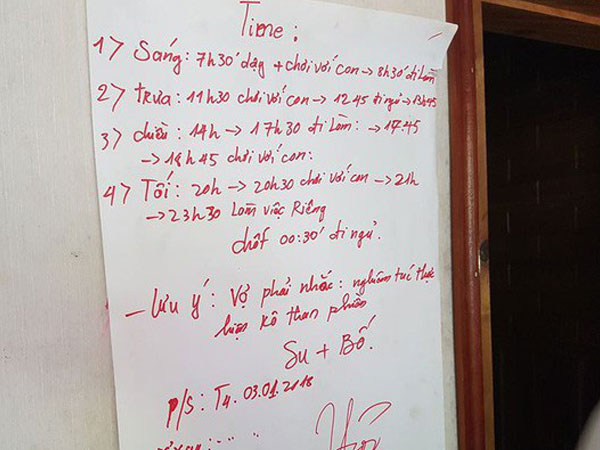 Time:
1> Sáng: 7h30' dậy + chơi với con → 8h30' đi làm
2> Trưa: 11h30 chơi với con → 12 45 đi ngủ → 13h45
3> chiều: 14h → 17h30 đi làm: → 17:45
→ 18h45 chơi với con:
4> Tối: 20h → 20h30 chơi với con → 21h
→ 23h30 Làm việc Riêng
chốt 00:30' đi ngủ.
– Lưu ý: Vợ phải nhắc: nghiêm túc thực
hiện kô than phiền
Su + Bố.
P/S: T4. 03.01.2018